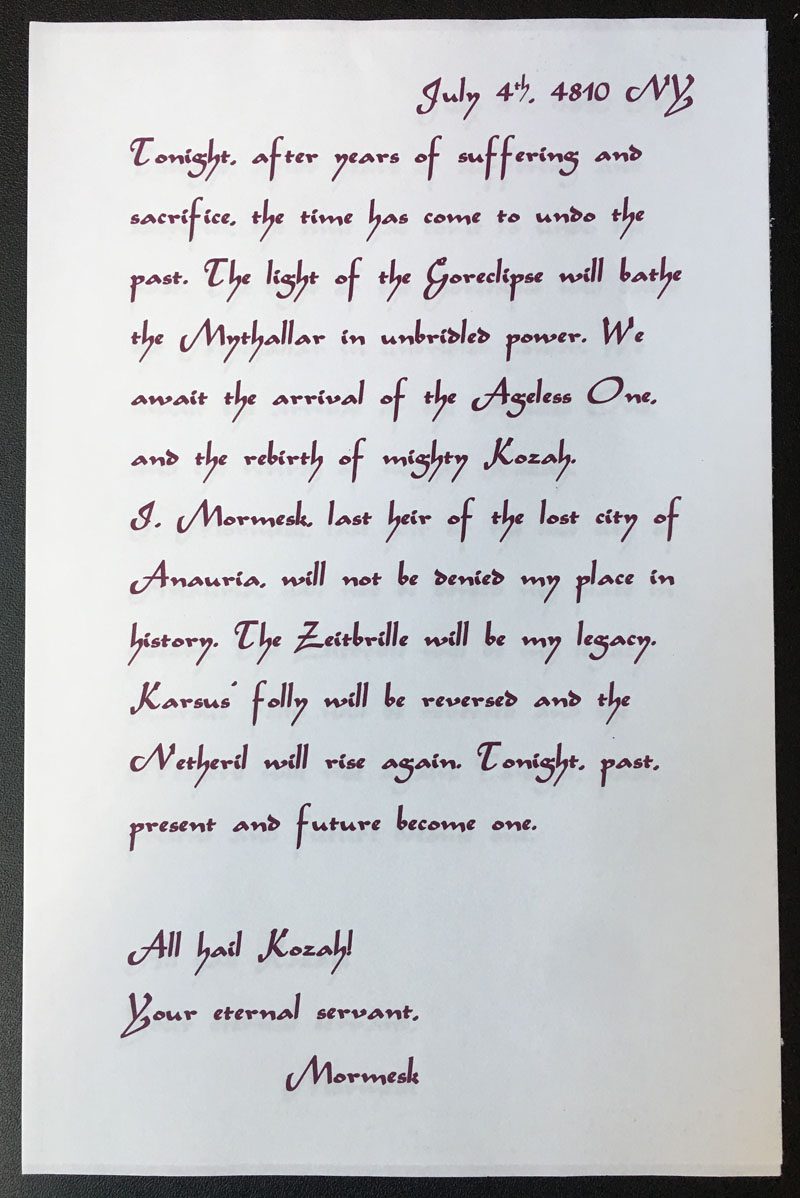 July 4th, 4810 NY
Tonight, after years of suffering and
sacrifice, the time has come to undo the
past. The light of the Goreclipse will bathe
the Mythallar in unbridled power. We
await the arrival of the Ageless One,
and the rebirth of mighty Kozah.
I, Mormesk, last heir of the lost city of
Anauria, will not be denied my place in
history. The Zeitbrille will be my legacy.
Karsus' folly will be reversed and the
Netheril will rise again. Tonight, past,
present and future become one.
All hail Kozah!
Your eternal servant,
Mormesk